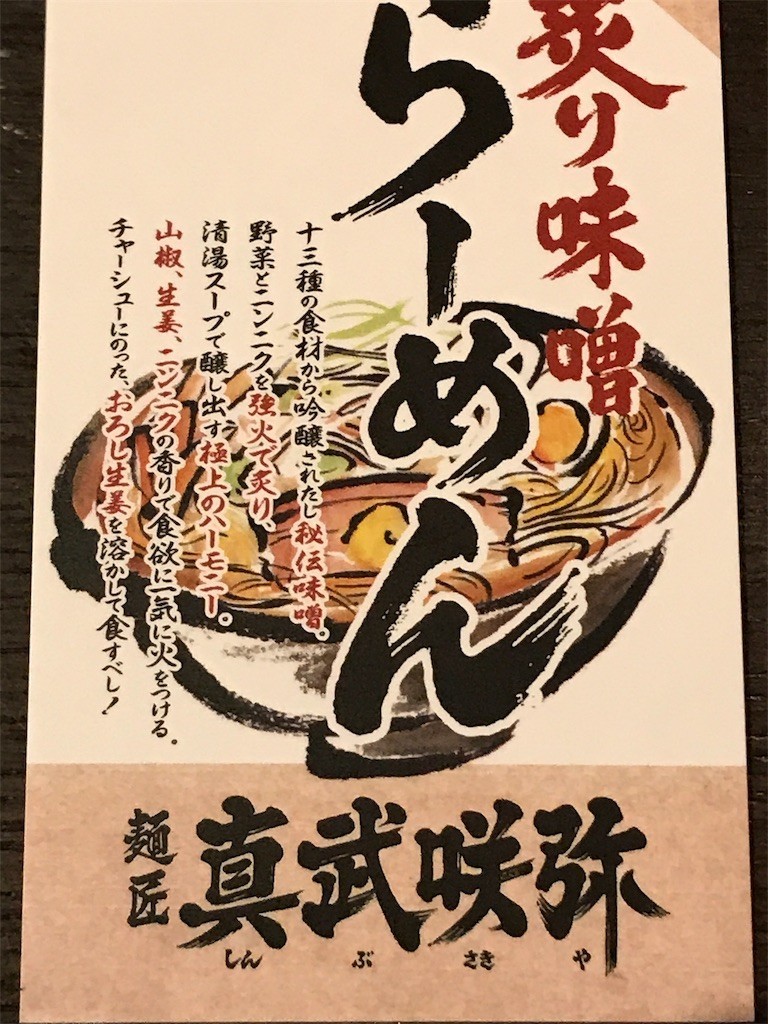 炙り味噌
らーめん
十三種の食材から吟醸されたし秘伝味噌。
野菜とニンニクを強火で炙り、
清湯スープで醸し出す極上のハーモニー。
山椒、生姜、ニンニクの香りで食欲に一気に火をつける。
チャーシューにのった、おろし生姜を溶かして食すべし!
麺匠
真武咲弥
しんぶさきや